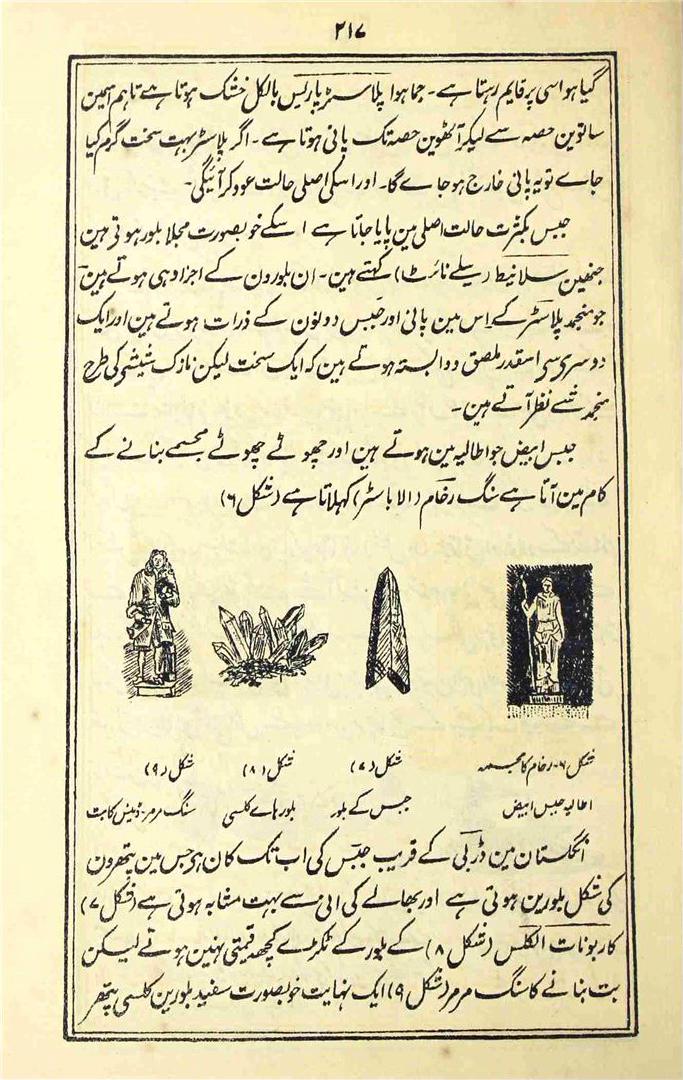 ۲۱۷
گیا ہو اسی پر قایم رہتا ہے۔ جما ہوا پلاسٹر پارلیس بالکل خشک ہوتا ہے تاہم اسمین
ساتوین حصہ سے لیکر آٹھوین حصہ تک پانی ہوتا ہے۔ اگر پلاسٹر بہت سخت گرم کیا
جاے تو یہ پانی خارج ہو جاے گا۔ اور اسکی اصلی حالت عود کر آئیگی۔
جبس بکثرت حالت اصلی مین پایا جاتا ہے اسکے خوبصورت مجلا بلور ہوتی ہین
جنھین سلانیط (سیلے نائرٹ) کہتے ہین۔ ان بلورون کے اجزا وہی ہوتے ہین
جو منجمد پلاسٹر کے اس مین پانی اور جبس دولون کے ذرات ہوتے ہین اور ایک
دوسری سے اسقدر ملصق و وابستہ ہوتے ہین کہ ایک سخت لیکن نازک شیشی کی طرح
منجمد شے نظر آتے ہین۔
جبس ابیض جو اطالیہ مین ہوتے ہین اور چھوٹے چھوٹے مجسمے بنانے کے
کام مین آتا ہے سنگ رخام (الاباسٹر) کہلاتا ہے (شکل ۶)
شکل ۶۔ رخام کا مجسمہ
شکل (۷)
شکل (۸)
شکل (۹)
اطالیہ جبس ابیض
جبس کے بلور
بلور ہاے کلسی
سنگ مرمر۔ کا بت
انگلستان مین ڈربی کے قریب جبس کی اب تک کان ہر جس مین پتھرون
کی شکل بلورین ہوتی ہے اور بھالے کی انی سے بہت مشابہ ہوتی ہے (شکل ۷)
کاربونات الکلس (شکل ۸) کے بلور کے ٹکڑے کچھ قیمتی نہین ہوتے لیکن
بت بنانے کا سنگ مرمر (شکل ۹) ایک نہایت خوبصورت سفید بلورین کلسی پتھر